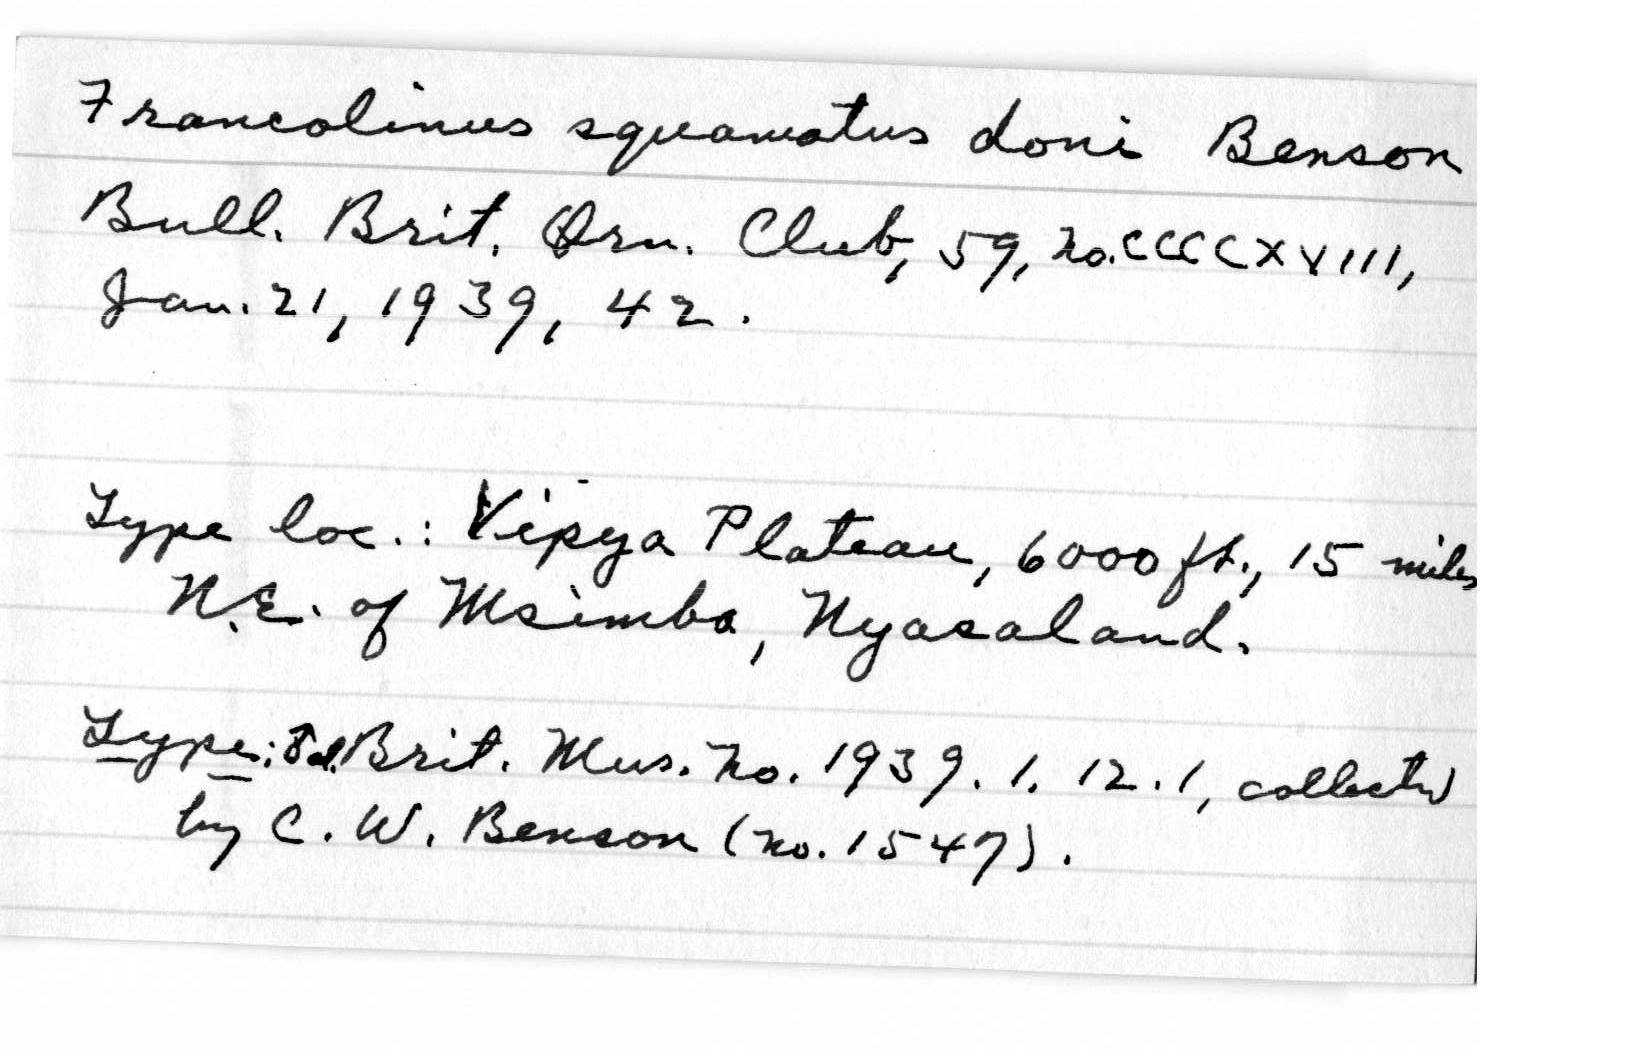 Francolinus squamatus doni Benson
Bull. Brit. Orn. Club, 59, no. CCCCXVIII,
Jan. 21, 1939, 42.
Type loc.: Vipya Plateau, 6000 ft., 15 miles
N.E. of Msimba, Nyasaland.
Type: Brit. Mus. no. 1939.1.12.1, collected
by C. W. Benson (no. 1547).